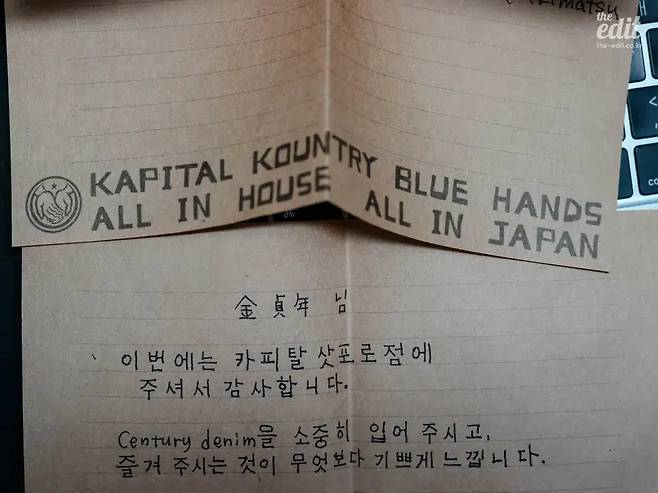 the
edit
the-edit.co.kr
KAPITAL KOUNTRY BLUE HANDS
ALL IN HOUSE ALL IN JAPAN
金貞年 님
이번에는 카피탈 삿포로점에
주셔서 감사합니다.
Century denim을 소중히 입어 주시고,
즐겨 주시는 것이 무엇보다 기쁘게 느낍니다.